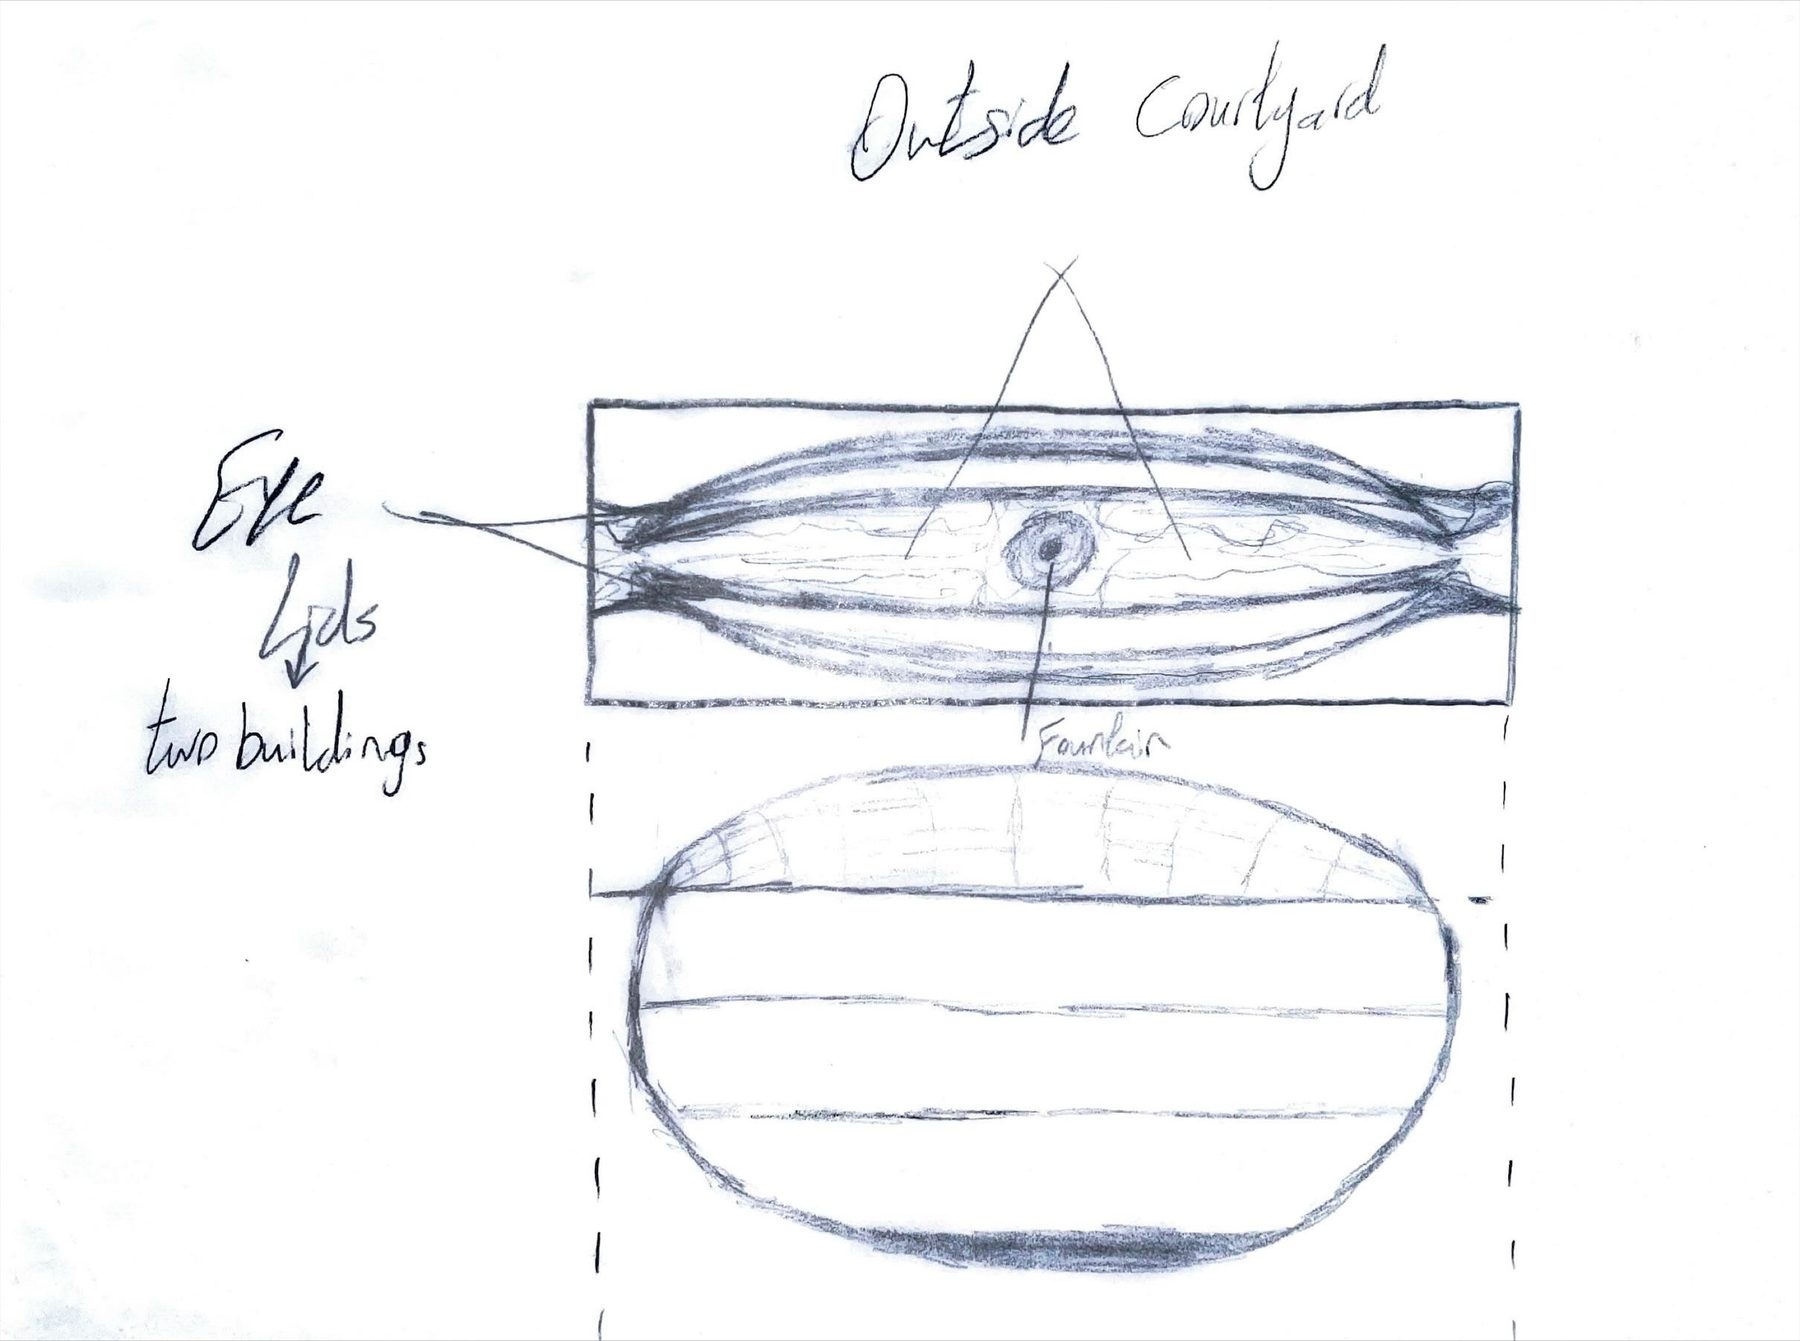 Outside Courtyard
Eye
Lids
two buildings
Fountain